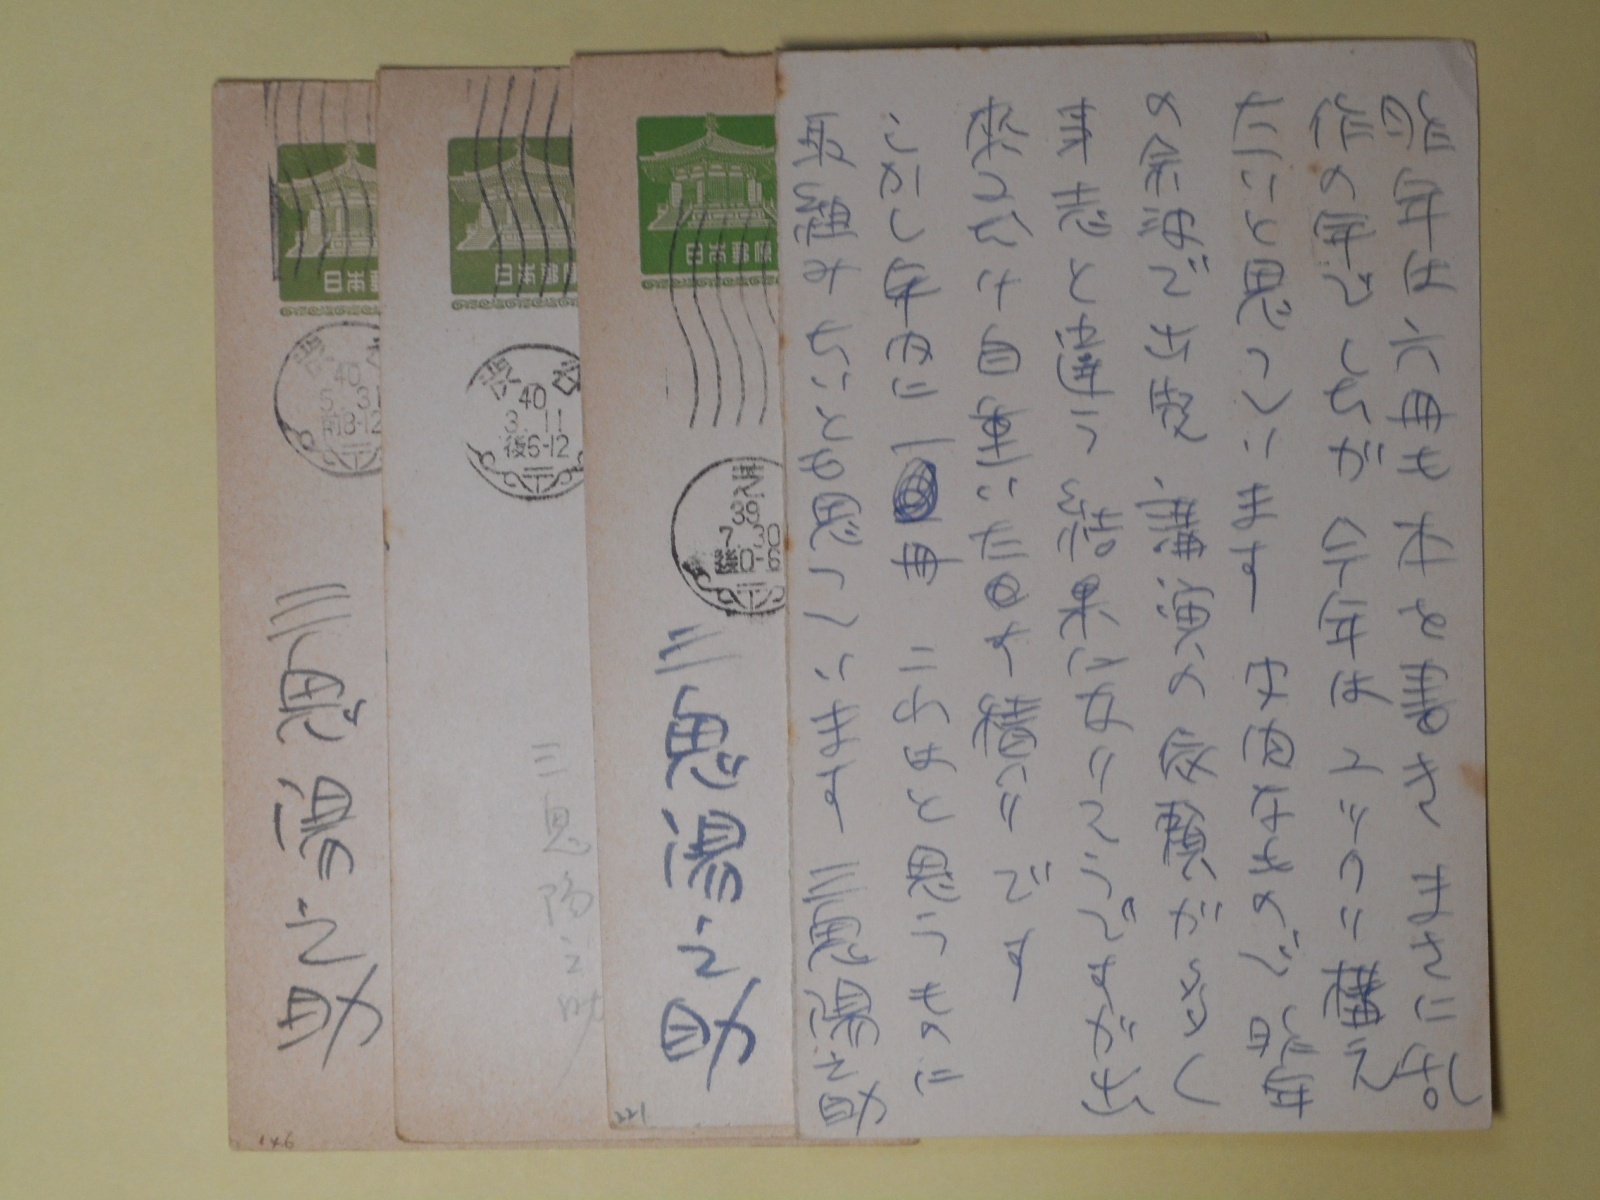 昨年は六冊も本を書き まさに乱
作の年でしたが 今年はユックリ構え
たいと思っています 内内なもので 昨年
の余波で出発 講演の依頼が多く
事志と違う結果になりそうですが 出
来るだけ自重いたす積りです
しかし年内に一冊 これはと思うものに
取組みたいとも思っています 三鬼陽之助
日本郵便
芝
39
7.30
後0-6
三鬼陽之助
221
日本郵便
渋谷
40
3.11
後6-12
三鬼陽之助
日本郵便
渋谷
40
5.31
前8-12
三鬼陽之助
146